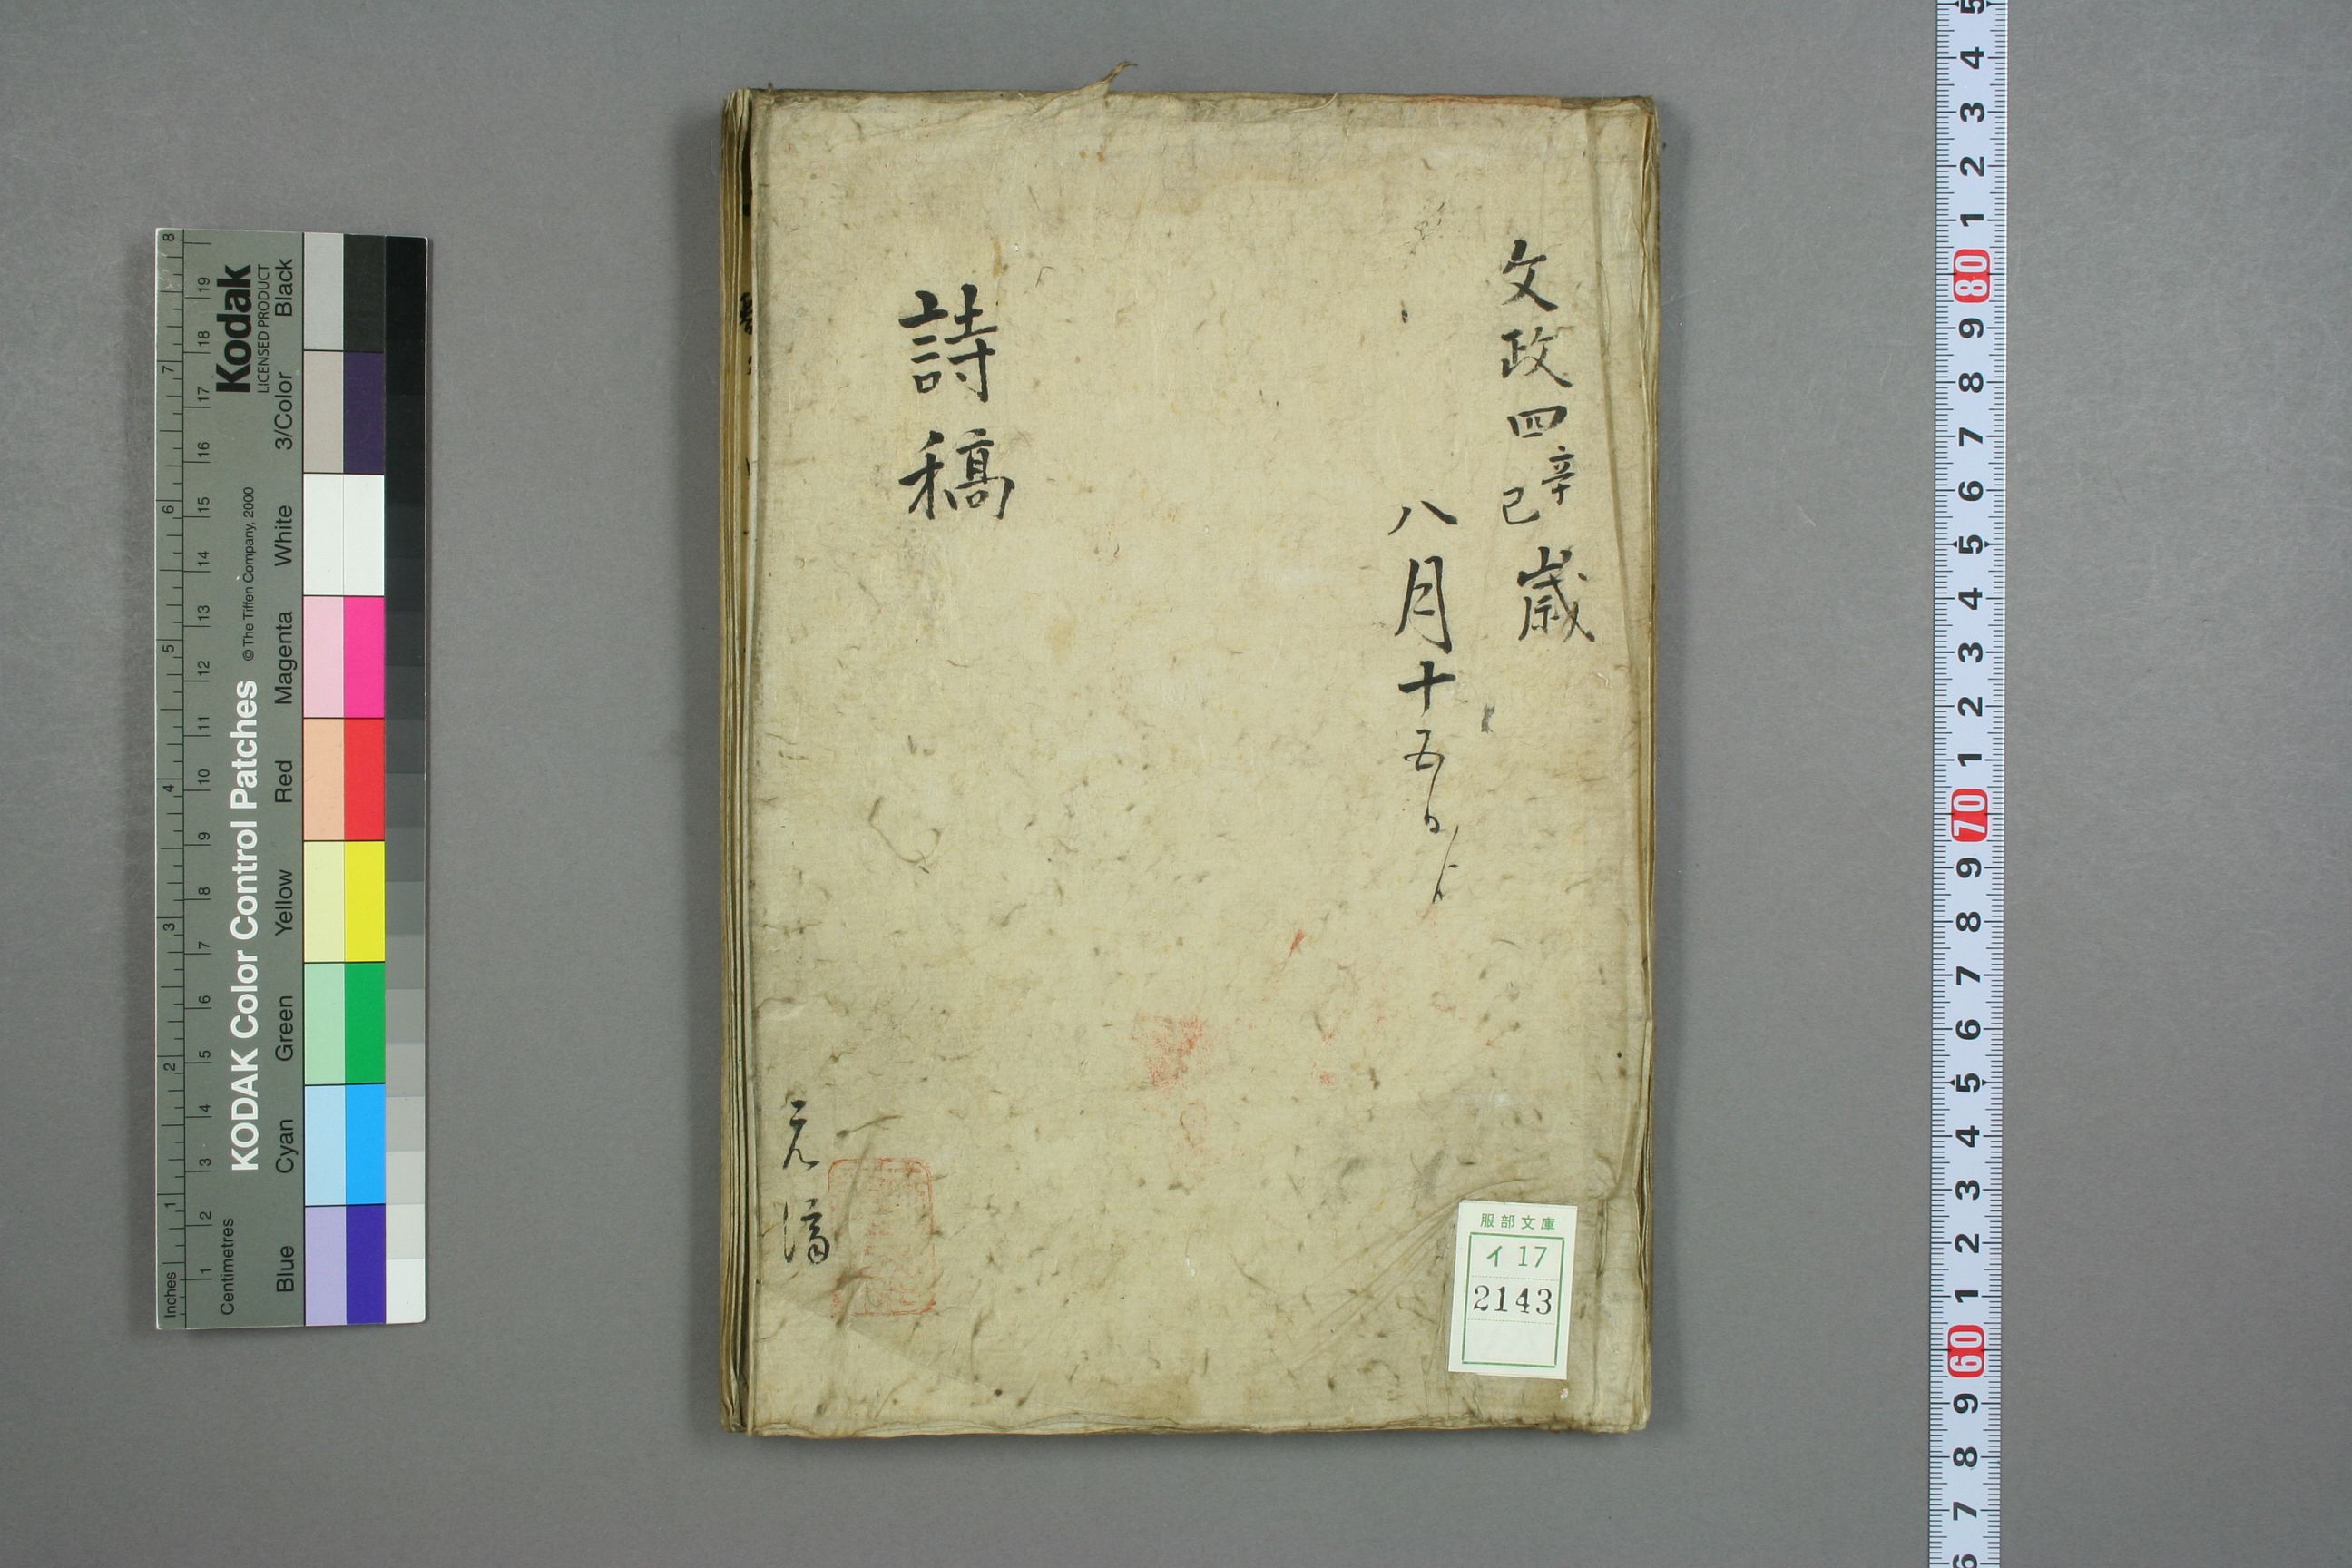 文政四辛巳歳
八月十五日ゟ
詩稿
元済
服部文庫
イ 17
2143
Kodak
LICENSED PRODUCT
KODAK Color Control Patches © The Tiffen Company, 2000
Blue Cyan Green Yellow Red Magenta White 3/Color Black
Inches 1 2 3 4 5 6 7 8
Centimetres 1 2 3 4 5 6 7 8 9 10 11 12 13 14 15 16 17 18 19
5 4 3 2 1 80 9 8 7 6 5 4 3 2 1 70 9 8 7 6 5 4 3 2 1 60 9 8 7 6